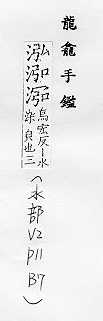 龍龕手鑑
泓
烏宏反水
深皃也三
(水部 V2 P11 B7)